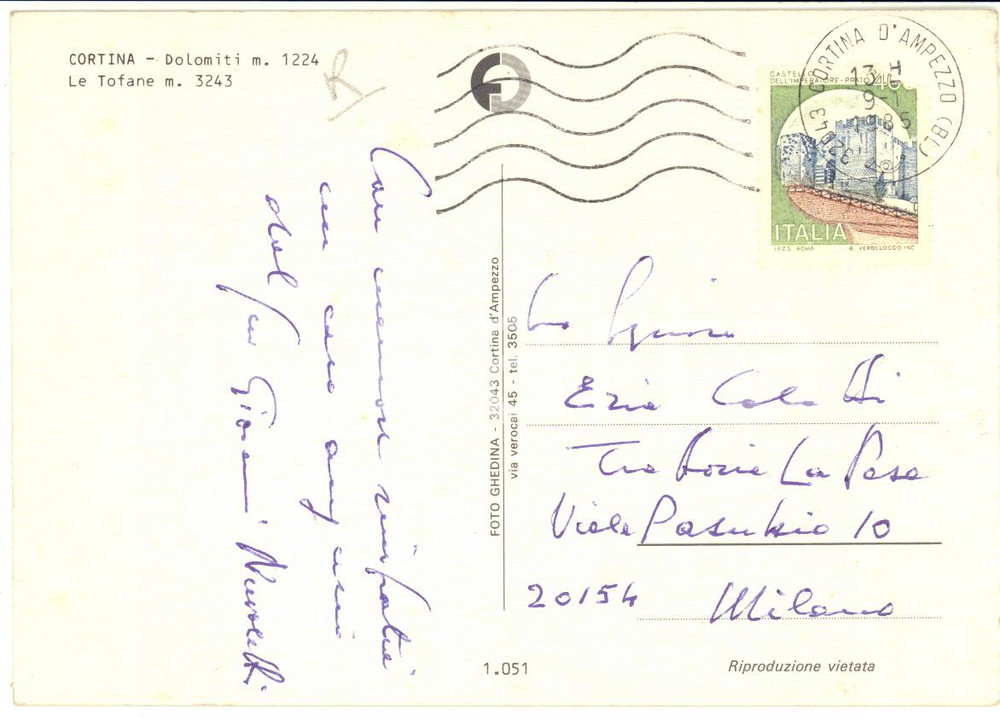 CORTINA – Dolomiti m. 1224
Le Tofane m. 3243
Con memore simpatia
un caro augurio
dal suo Giovanni Nuvoletti
FOTO GHEDINA - 32043 Cortina d'Ampezzo
via verocai 45 - tel. 3505
32043 CORTINA D'AMPEZZO (BL)
13-H
9-
1985
CASTELLO
DELL'IMPERATORE-PRATO
ITALIA
I.P.Z.S. ROMA
E. VERDELOCCO INC.
Ezio
Trattoria La Pesa
Viale Pasubio 10
20154 Milano
1.051
Riproduzione vietata